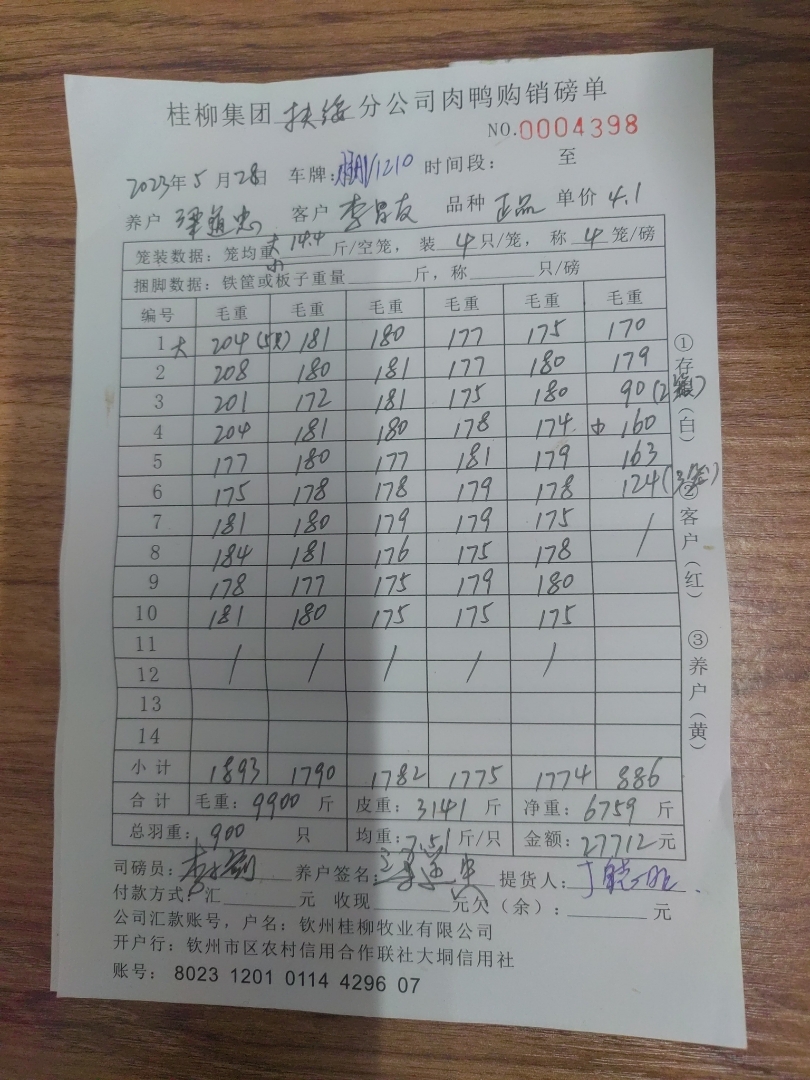 桂柳集团扶绥分公司肉鸭购销磅单
NO.0004398
2023年5月28日 车牌: 1210 时间段: 至
养户 忠 客户 李昌友 品种 正品 单价 4.1
笼装数据: 笼均重 大 14.4 斤/空笼, 装 4 只/笼, 称 4 笼/磅
小
捆脚数据: 铁筐或板子重量 斤, 称 只/磅
编号 毛重 毛重 毛重 毛重 毛重 毛重
1 大 204 (5只) 181 180 177 175 170
2 208 180 181 177 180 179
3 201 172 181 175 180 90 (2笼)
4 204 181 180 178 174 中 160
5 177 180 177 181 179 163
6 175 178 178 179 178 124 (3笼)
7 181 180 179 179 175 /
8 184 181 176 175 178
9 178 177 175 179 180
10 181 180 175 175 175
11 / / / / /
12
13
14
小计 1893 1790 1782 1775 1774 886
合计 毛重: 9900 斤 皮重: 3141 斤 净重: 6759 斤
总羽重: 900 只 均重: 7.51 斤/只 金额: 27712 元
司磅员: 养户签名: 提货人:
付款方式: 汇 元 收现 元欠(余): 元
公司汇款账号, 户名: 钦州桂柳牧业有限公司
开户行: 钦州市区农村信用合作联社大垌信用社
账号: 8023 1201 0114 4296 07
①存根(白) ②客户(红) ③养户(黄)